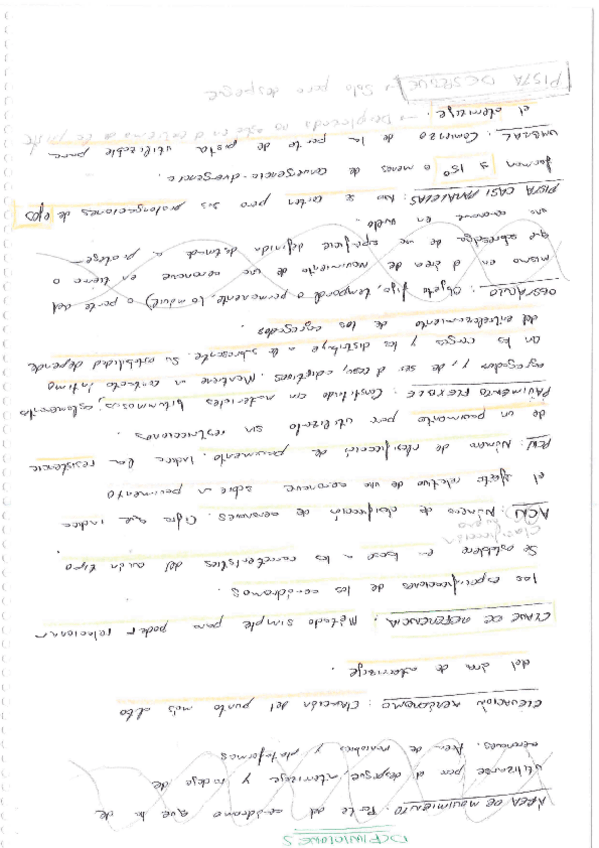 DEFINICIONES
ÁREA DE MOVIMIENTO: Parte del aeródromo que ha de
utilizarse para el despegue, aterrizaje y rodaje de
aeronaves. Área de maniobras y plataformas
ELEVACIÓN AERÓDROMO: Elevación del punto más alto
del área de aterrizaje.
CLAVE DE REFERENCIA. Método simple para poder relacionar
las especificaciones de los aeródromos.
Se establece en base a las características del avión tipo.
Clasificación
ACN: Número de clasificación de aeronaves. Cifra que indica
el efecto relativo de una aeronave sobre un pavimento
PCN: Número de clasificación de pavimento. Indica la resistencia
de un pavimento para utilizarlo sin restricciones.
PAVIMENTO FLEXIBLE: Constituido con materiales bituminosos, aglomerantes
agregados y, de ser el caso, aditivos. Mantiene un contacto íntimo
con las cargas y las distribuye a la subrasante. Su estabilidad depende
del entrelazamiento de los agregados.
OBSTÁCULO: Objeto fijo (temporal o permanente, lo móvil) o parte del
mismo en el área de movimiento de una aeronave en tierra o
que sobresalga de una superficie definida destinada a proteger
aeronaves en vuelo
PISTA CASI PARALELAS: No se cortan pero sus prolongaciones de ejes
forman → 15° o menos de convergencia-divergencia.
UMBRAL: Comienzo de la parte de pista utilizable para
el aterrizaje. → Desplazado no está en el extremo de la pista
PISTA DESPEGUE → Solo para despegue